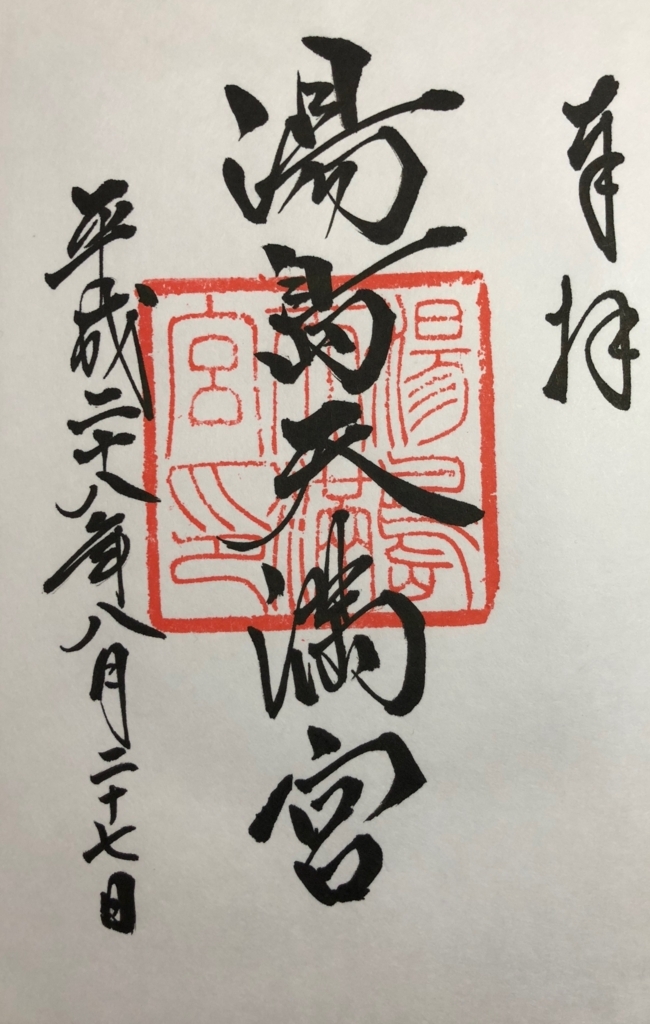 奉拝
湯島天満宮
平成二十八年八月二十七日
湯島天満宮印